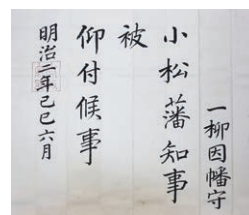 一柳因幡守
小松藩知事
被
仰付候事
明治二年己巳六月